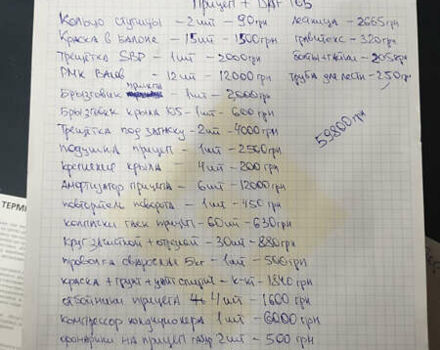 Прицеп + DAF 105
Кольцо ступицы – 2шт – 90грн
Краска в балоне – 15шт – 1500грн
Трещётка SBP – 1шт – 2000грн
РМК 12шт – 12000грн
Брызговик прицепа – 1шт – 2000грн
Брызговик крыла 105 – 1шт – 600грн
Трещётка под – 2шт – 4000грн
Подушка прицеп – 1шт – 2500грн
Крепление крыла – 4шт – 200грн
Амортизатор прицепа – 6шт – 12000грн
повторитель поворота – 1шт – 450грн
Колпачки гаек прицеп – 60шт – 630грн
Круг зачистной + отрезной – 30шт – 880грн
проволка сварочная 5кг – 1шт – 500грн
краска + грунт + – к-кт – 1840грн
отбойники прицепа 4шт – 1600грн
компрессор кондиционера 1шт – 6000грн
фонарики на прицеп 2шт – 500грн
лестница – 2665грн
гравитекс – 320грн
болты + гайки – 205грн
труба для – 250грн
59800грн
ТЕРМІ